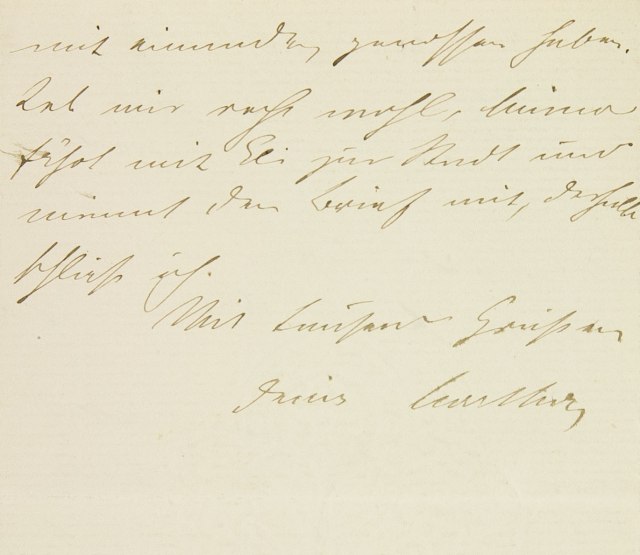 mit einander genossen haben.
Leb mir recht wohl,
fährt mit Eli zur Stadt und
nimmt den Brief mit, deshalb
schließ ich.
Mit tausend Grüßen
Deine